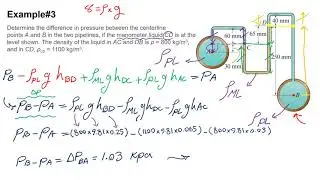 Example#3
γ = ρ × g
Determine the difference in pressure between the centerline
points A and B in the two pipelines, if the manometer liquid CD is at the
level shown. The density of the liquid in AC and DB is ρ = 800 kg/m³,
and in CD, ρCD = 1100 kg/m³.
40 mm
65 mm
60 mm
30 mm
PB - ρPL g hBD + ρML g hDC + ρPL g hAC = PA
PB - PA = ρPL g hBD - ρML g hDC - ρPL g hAC
PB - PA = (800×9.81×0.25) - (1100×9.81×0.065) - (800×9.81×0.03)
PB - PA = ΔPBA = 1.03 kpa
ρPL
ρML
ρPL
C
D
B